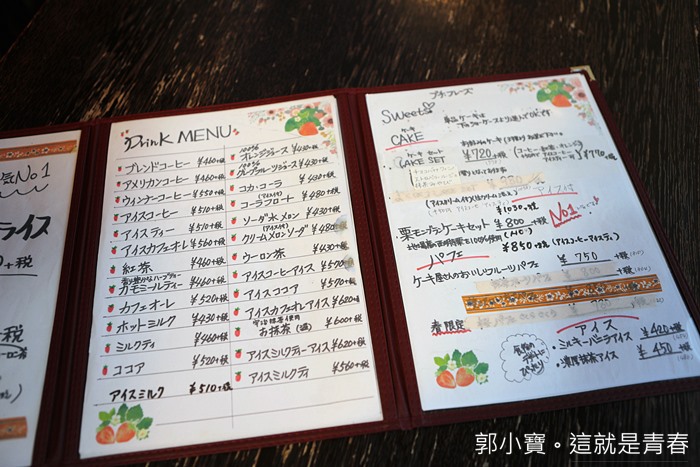 気No1
ライス
+税
Drink MENU
ブレンドコーヒー ¥460+税
アメリカンコーヒー ¥460+税
ウィンナーコーヒー ¥550+税
アイスコーヒー ¥510+税
アイスティー ¥510+税
アイスカフェオレ ¥560+税
紅茶 ¥460+税
カモミールティー ¥460+税
カフェオーレ ¥520+税
ホットミルク ¥430+税
ミルクティ ¥460+税
ココア ¥520+税
アイスミルク ¥510+税
100%
オレンジジュース ¥430+税
100%
グレープフルーツジュース ¥430+税
コカ・コーラ ¥430+税
(アイス付)
コーラフロート ¥480+税
ソーダ水 メロン ¥430+税
(アイス付)
クリームメロンソーダ ¥480
ウーロン茶 ¥430+税
アイスコーヒーアイス ¥570
アイスココア ¥570+税
アイスカフェオレアイス ¥620+税
宇治抹茶使用
お抹茶(温) ¥600+税
アイスミルクティーアイス ¥620+税
アイスミルクティ ¥560+税
プチ・フレーズ
Sweet
ケーキ
CAKE
単品ケーキは
ケーキ セット
CAKE SET
¥720+税
¥770+税
アイス付
¥1030+税
栗モンブランケーキセット ¥800+税
No1
¥850+税 (アイスコーヒー・アイスティ)
パフェ
ケーキ屋さんのおいしいフルーツパフェ ¥750+税
春限定
アイス
・ミルキーバニラアイス ¥420+税
・濃厚抹茶アイス ¥450+税
郭小寶。這就是青春